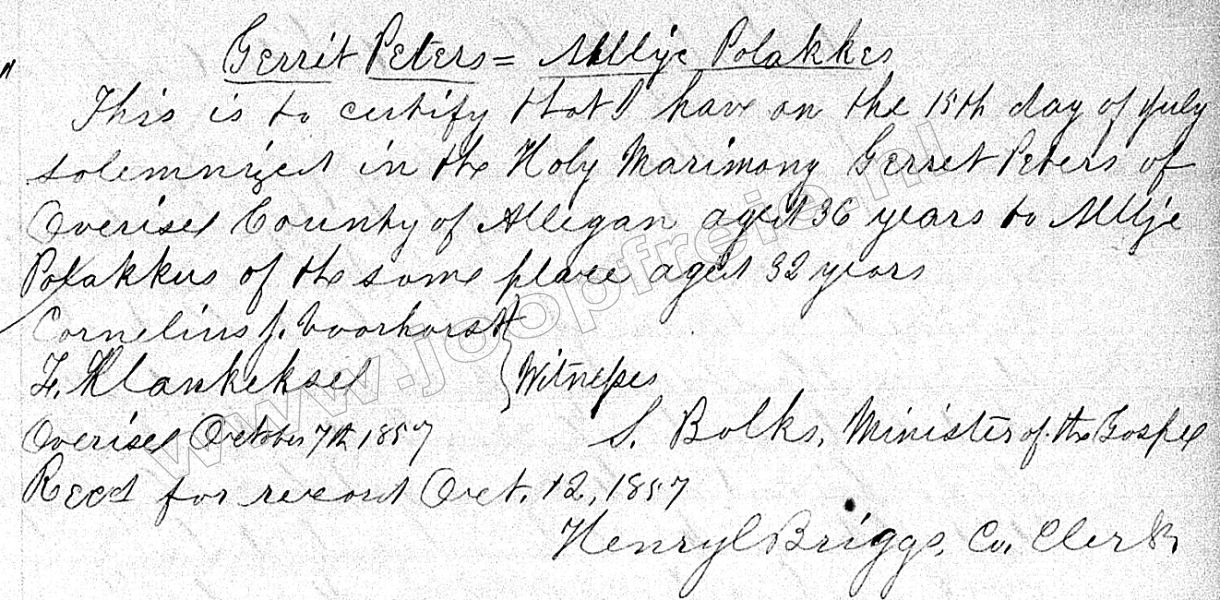 Gerrit Peters = Alltje Polakkes
"
This is to certify that I have on the 15th day of July
solemnized in the Holy Marimony Gerret Peters of
Overisel County of Allegan aged 36 years to Alltje
Polakkus of the same place aged 32 years
Cornelius J. Voorhorst
Klankeksel } Witnesses
Overisel October 7th 1857 S. Bolks, Minister of the Gospel
Recd for record Oct. 12, 1857
Henry C Briggs, Co, Clerk
www.joopfreie.nl